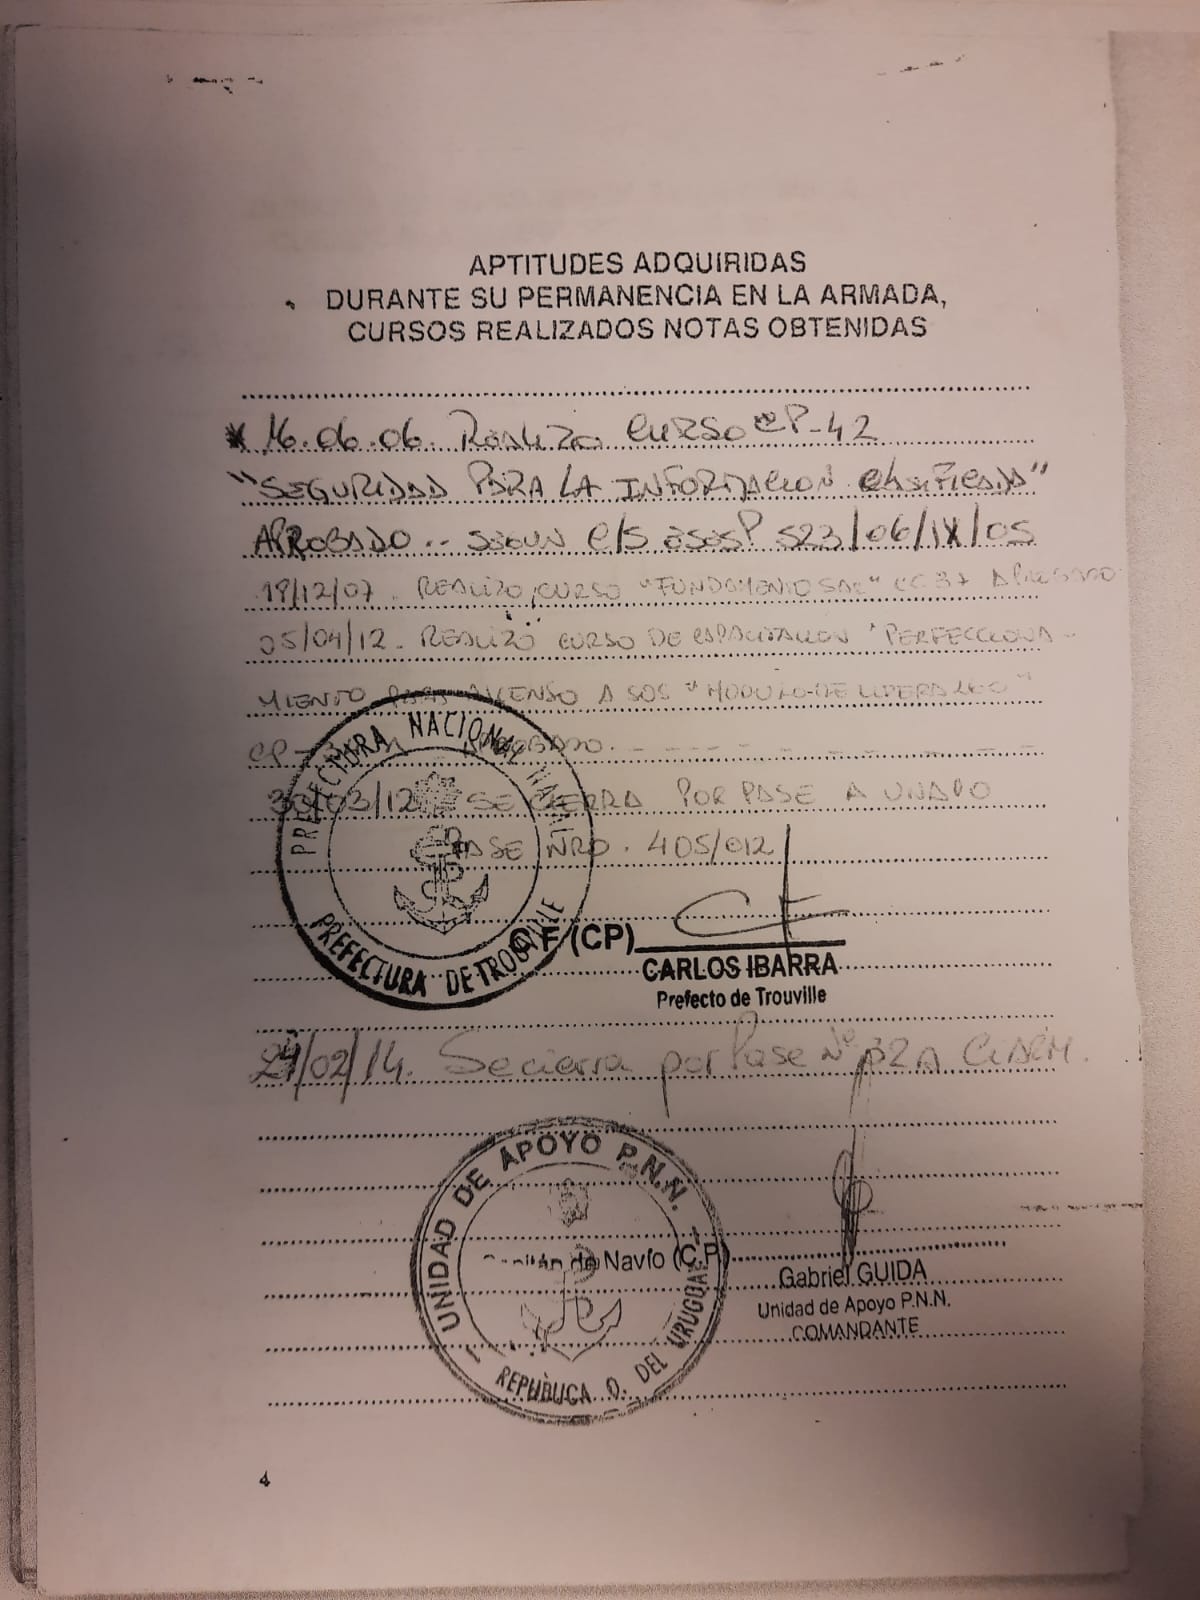 APTITUDES ADQUIRIDAS
DURANTE SU PERMANENCIA EN LA ARMADA,
CURSOS REALIZADOS NOTAS OBTENIDAS
* 16.06.06. REALIZO CURSO CP-42
"SEGURIDAD PARA LA INFORMACION CLASIFICADA"
APROBADO .. SEGUN C/S 523/06/IX/05
18/12/07. REALIZO CURSO APROBADO
05/04/12. REALIZÓ CURSO DE CAPACITACION "PERFECCIONA-
MIENTO PARA ASCENSO A SOS "MODULO DE LIDERAZGO"
CP APROBADO.
30/03/12 SE CIERRA POR PASE A UNAPO
PASE NRO. 405/012
PREFECTURA NACIONAL NAVAL
PREFECTURA DE TROUVILLE
C F (CP)
CARLOS IBARRA
Prefecto de Trouville
/02/14. Se cierra por Pase Nº 32 A
UNIDAD DE APOYO P.N.N.
Capitán de Navío (C.P)
REPUBLICA O. DEL URUGUAY
Gabriel GUIDA
Unidad de Apoyo P.N.N.
COMANDANTE
4